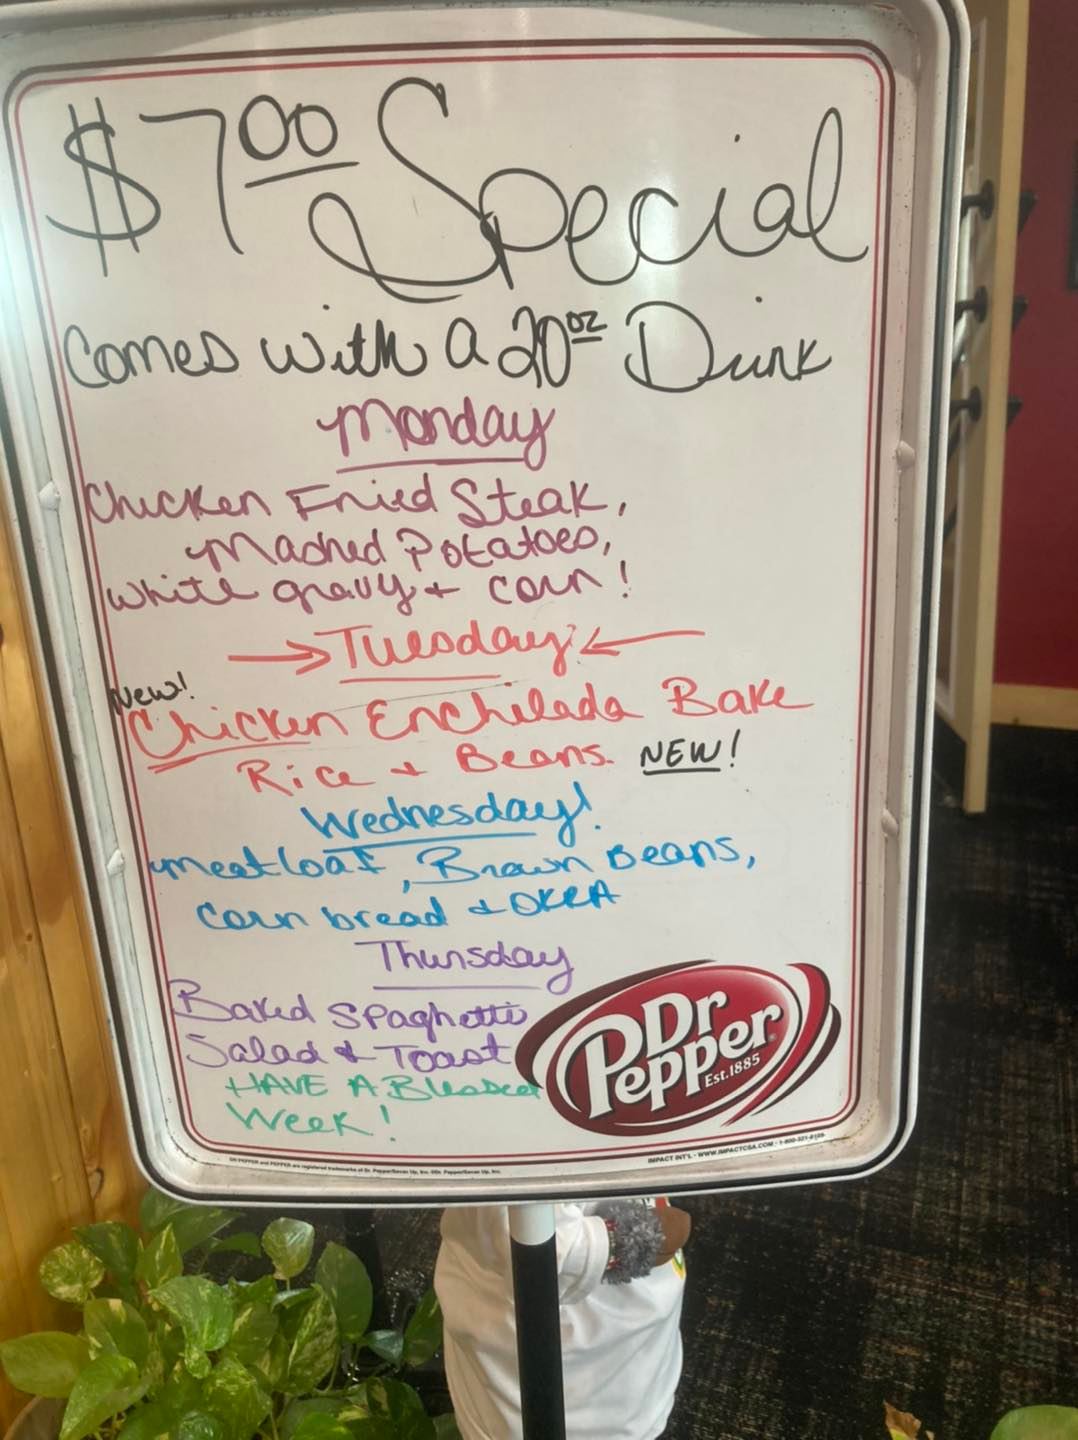 $7.00 Special
Comes with a 20oz Drink
Monday
Chicken Fried Steak,
Mashed Potatoes,
white gravy + corn!
→ Tuesday! ←
New!
Chicken Enchilada Bake
Rice + Beans. NEW!
Wednesday!
meatloaf, Brown Beans,
corn bread + OKRA
Thursday
Baked Spaghetti
Salad + Toast
HAVE A Blessed
Week!
Dr
Pepper
Est.1885
DR PEPPER and PEPPER are registered trademarks of Dr. Pepper/Seven Up, Inc. ©Dr. Pepper/Seven Up, Inc.
IMPACT INT'L - WWW.IMPACTCSA.COM - 1-800-321-8185